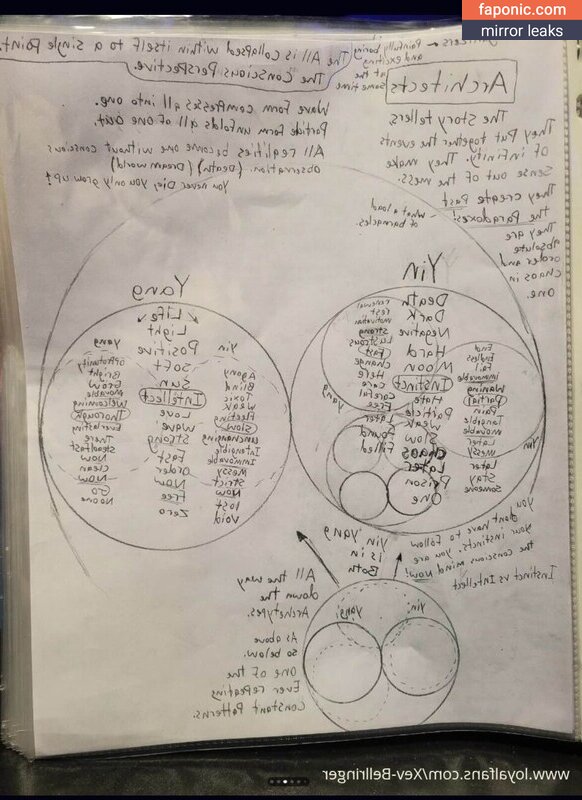 faponic.com
mirror leaks
The All is collapsed within itself to a single Point.
The Conscious Perspective.
Painfully boring
and exciting
at the
same time
Architects
The Story tellers,
They Put together the events
of infinity. They make
sense out of the mess.
They create Past
The Paradoxes!
They are
absolute
order and
chaos in
one.
Wave Form compresses all into one.
Particle Form unfolds all of one out.
All realities become one without conscious
observation. (Death) (Dream world)
You never Die, you only grow up!
what a load
of barnacles
Yin
Death
Dark
Negative
Hard
Moon
Instinct
Hate
Particle
Weak
Slow
chaos
Later
Prison
One
renewal
rest
motivation
strong
Fast
change
Here
care
careful
Free
Later
Found
Filled
yang
End
Endless
Fail
Immovable
Waning
Partial
Pain
Tangible
movable
Later
messy
Later
Stay
Someone
Yin
Yang
Life
Light
Positive
Soft
Sun
Intellect
Love
wave
Strong
Fast
order
Now
Free
Zero
Yin
Agony
Blind
Toxic
Weak
Fleeting
Slow
unchanging
Intangible
Immovable
Messy
Strict
Now
Lost
Void
yang
opportunity
Bright
Grow
movable
welcoming
Thorough
Everlasting
There
Steadfast
Now
clean
Now
Go
No one
you don't have to follow
your instincts, you are
the conscious mind Now!
Instinct vs Intellect
Yin Yang
is in
Both
yin
yang
All the way
down the
Archetypes.
As above
so below.
One of the
Ever repeating
Constant Patterns.
www.loyalfans.com/Xev-Bellringer